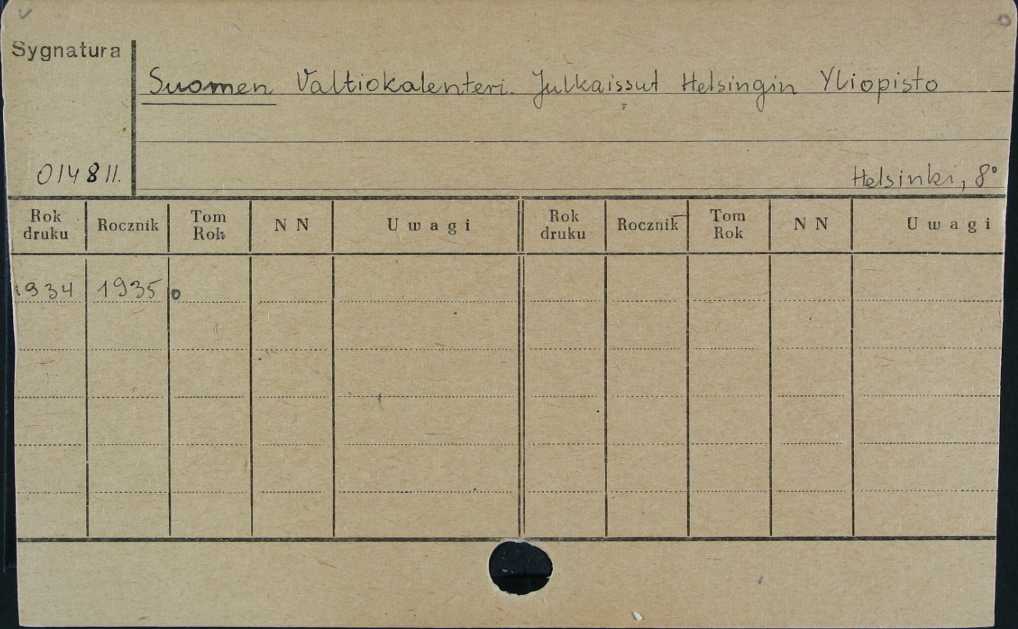 Sygnatura
Suomen Valtiokalenteri. Julkaissut Helsingin Yliopisto
014811.
Helsinki, 8°
Rok druku Rocznik Tom Rok N N Uwagi Rok druku Rocznik Tom Rok N N Uwagi
1934 1935